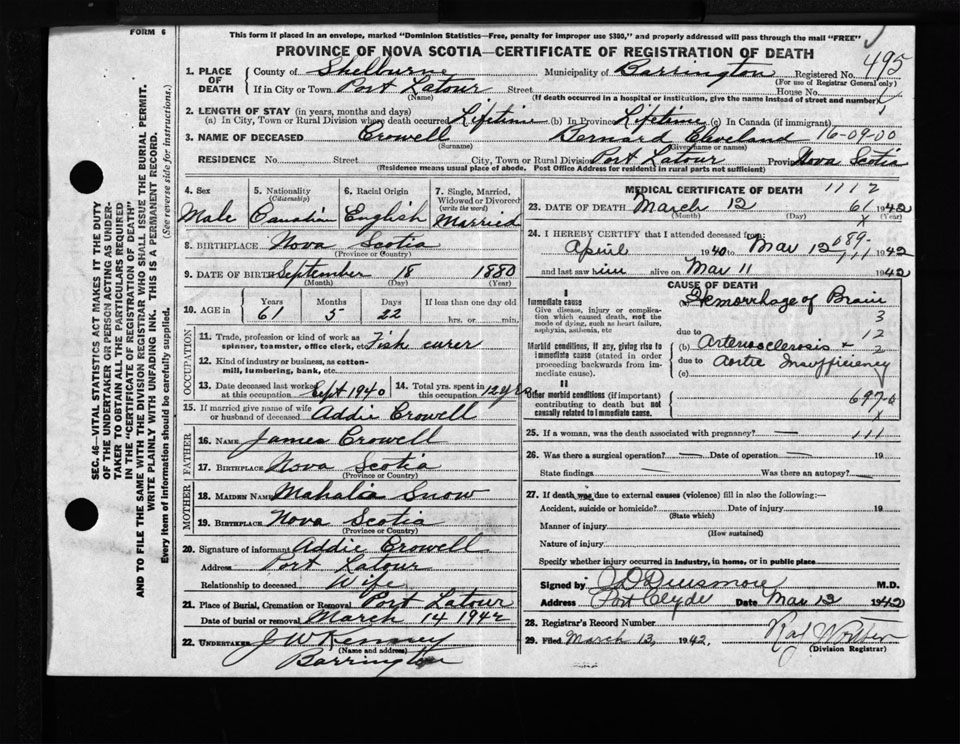 FORM 6
This form if placed in an envelope, marked "Dominion Statistics—Free, penalty for improper use $300," and properly addressed will pass through the mail "FREE"
PROVINCE OF NOVA SCOTIA—CERTIFICATE OF REGISTRATION OF DEATH
495
1. PLACE OF DEATH
County of Shelburne Municipality of Barrington Registered No.
(For use of Registrar General only)
If in City or Town Port Latour Street House No.
(Name) (If death occurred in a hospital or institution, give the name instead of street and number)
2. LENGTH OF STAY (in years, months and days)
(a) In City, Town or Rural Division where death occurred Lifetime (b) In Province Lifetime (c) In Canada (if immigrant)
3. NAME OF DECEASED Crowell Bernard Cleveland 16-09-00
(Surname) (Given name or names)
RESIDENCE No. Street City, Town or Rural Division Port Latour Province Nova Scotia
(Residence means usual place of abode. Post Office Address for residents in rural parts not sufficient)
SEC. 46—VITAL STATISTICS ACT MAKES IT THE DUTY
OF THE UNDERTAKER OR PERSON ACTING AS UNDER-
TAKER TO OBTAIN ALL THE PARTICULARS REQUIRED
IN THE "CERTIFICATE OF REGISTRATION OF DEATH"
AND TO FILE THE SAME WITH THE DIVISION REGISTRAR WHO SHALL ISSUE THE BURIAL PERMIT.
WRITE PLAINLY WITH UNFADING INK. THIS IS A PERMANENT RECORD.
Every item of information should be carefully supplied. (See reverse side for instructions.)
4. Sex
Male
5. Nationality
(Citizenship)
Canadian
6. Racial Origin
English
7. Single, Married,
Widowed or Divorced
(write the word)
Married
8. BIRTHPLACE Nova Scotia
(Province or Country)
9. DATE OF BIRTH September 18 1880
(Month) (Day) (Year)
10. AGE in
Years Months Days If less than one day old
61 5 22 hrs. or min.
OCCUPATION
11. Trade, profession or kind of work as
spinner, teamster, office clerk, etc. Fish curer
12. Kind of industry or business, as cotton-
mill, lumbering, bank, etc.
13. Date deceased last worked
at this occupation Sept 1940
14. Total yrs. spent in
this occupation 12 yrs
15. If married give name of wife
or husband of deceased Addie Crowell
FATHER
16. NAME James Crowell
17. BIRTHPLACE Nova Scotia
(Province or Country)
MOTHER
18. MAIDEN NAME Mahalia Snow
19. BIRTHPLACE Nova Scotia
(Province or Country)
20. Signature of informant Addie Crowell
Address Port Latour
Relationship to deceased Wife
21. Place of Burial, Cremation or Removal Port Latour
Date of burial or removal March 14 1942
22. UNDERTAKER J W Kenney
(Name and address)
Barrington
MEDICAL CERTIFICATE OF DEATH 1112
23. DATE OF DEATH March 12 61 1942
(Month) (Day) (Year)
24. I HEREBY CERTIFY that I attended deceased from:
April 1940 to Mar 12 1942
and last saw him alive on Mar 11 1942
CAUSE OF DEATH
I
Immediate cause
Give disease, injury or complica-
tion which caused death, not the
mode of dying, such as heart failure,
asphyxia, asthenia, etc
(a) Hemorrhage of Brain
3
Morbid conditions, if any, giving rise to
immediate cause (stated in order
proceeding backwards from im-
mediate cause).
due to 12
(b) Arteriosclerosis + 2
due to Aortic Insufficiency
(c)
II
Other morbid conditions (if important)
contributing to death but not
causally related to immediate cause.
25. If a woman, was the death associated with pregnancy? — 111
26. Was there a surgical operation? — Date of operation — 19
State findings — Was there an autopsy? —
27. If death was due to external causes (violence) fill in also the following:—
Accident, suicide or homicide? Date of injury 19
(State which)
Manner of injury
(How sustained)
Nature of injury
Specify whether injury occurred in industry, in home, or in public place
Signed by Dinsmore M.D.
Address Port Clyde Date Mar 13 1942
28. Registrar's Record Number
29. Filed March 13, 1942.
(Division Registrar)